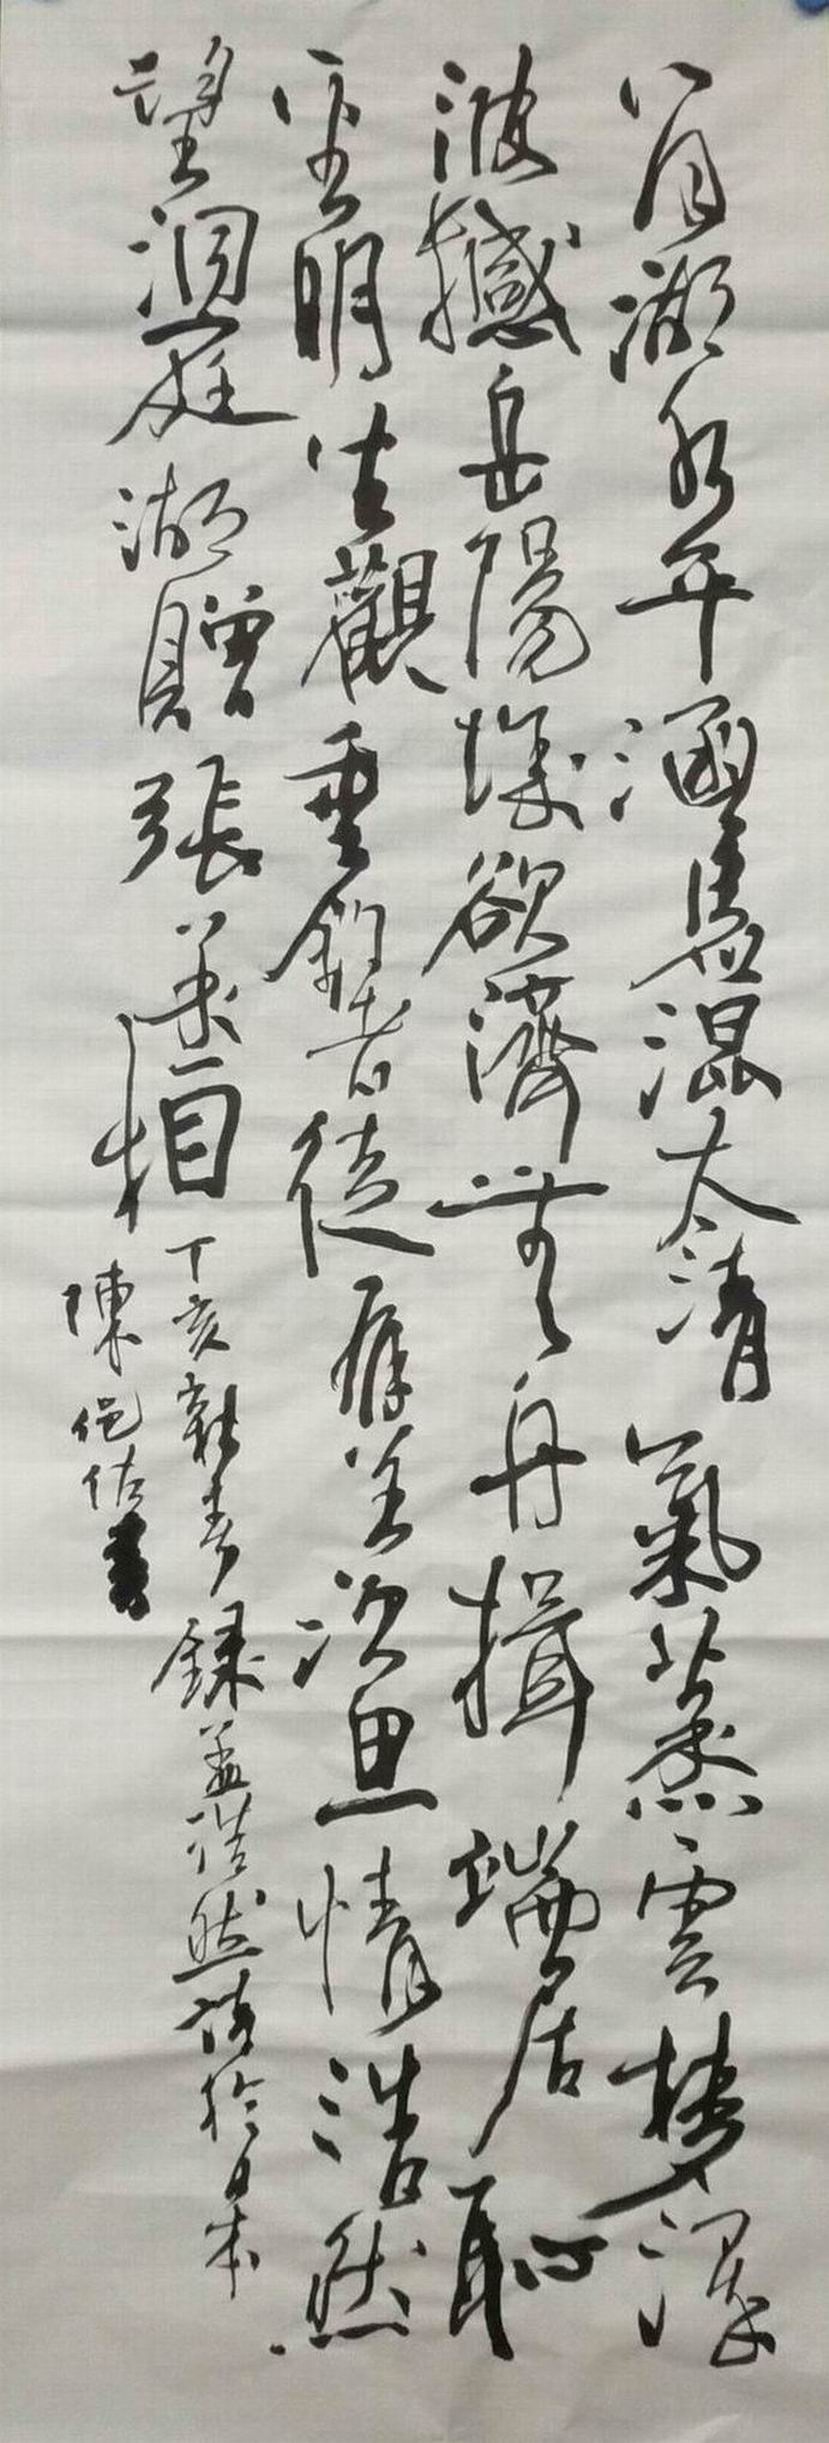 八月湖水平涵虛混太清氣蒸雲夢澤
波撼岳陽城欲濟無舟楫端居恥
聖明坐觀垂釣者徒有羨魚情浩然
望洞庭湖贈張丞相
丁亥新春錄孟浩然詩於日本
陳佑書